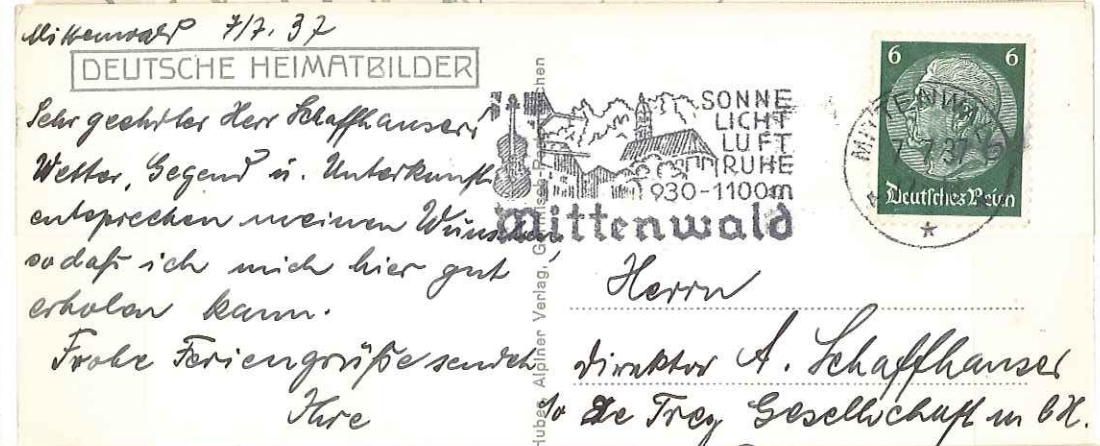 Mittenwald 7/7. 37
DEUTSCHE HEIMATBILDER
Sehr geehrter Herr Schaffhauser!
Wetter, Gegend u. Unterkunft
entsprechen meinen Wünschen,
sodaß ich mich hier gut
erholen kann.
Frohe Feriengrüße sendet
Ihre
Huber, Alpiner Verlag, Garmisch-P
chen
SONNE
LICHT
LUFT
RUHE
930-1100m
Mittenwald
6 6
Deutsches Reich
MITTENWALD
7.7.37
Herrn
Direktor A. Schaffhauser
c/o De Trey Gesellschaft m b H.